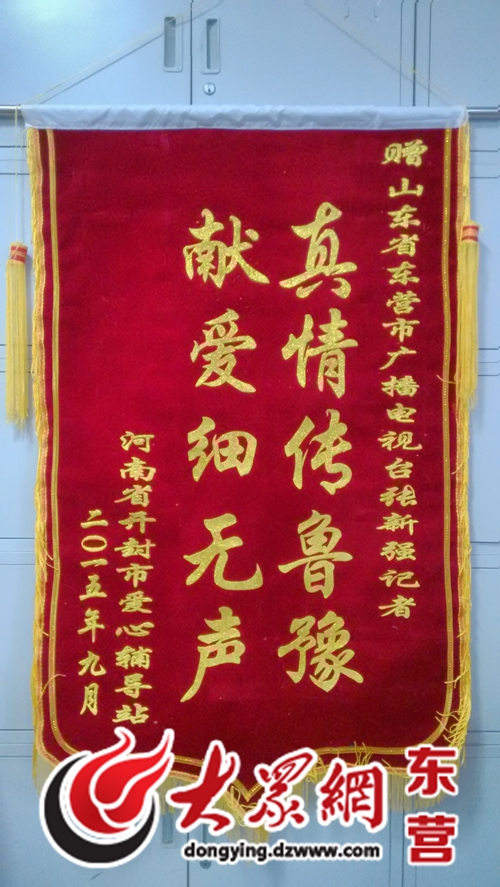 赠山东省东营市广播电视台张新强记者
真情传鲁豫
献爱细无声
河南省开封市爱心辅导站
二〇一五年九月
大眾網
东营
dongying.dzwww.com